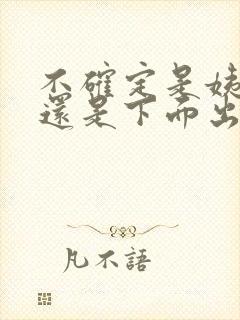 不確定是姨
還是下面出
凡不語